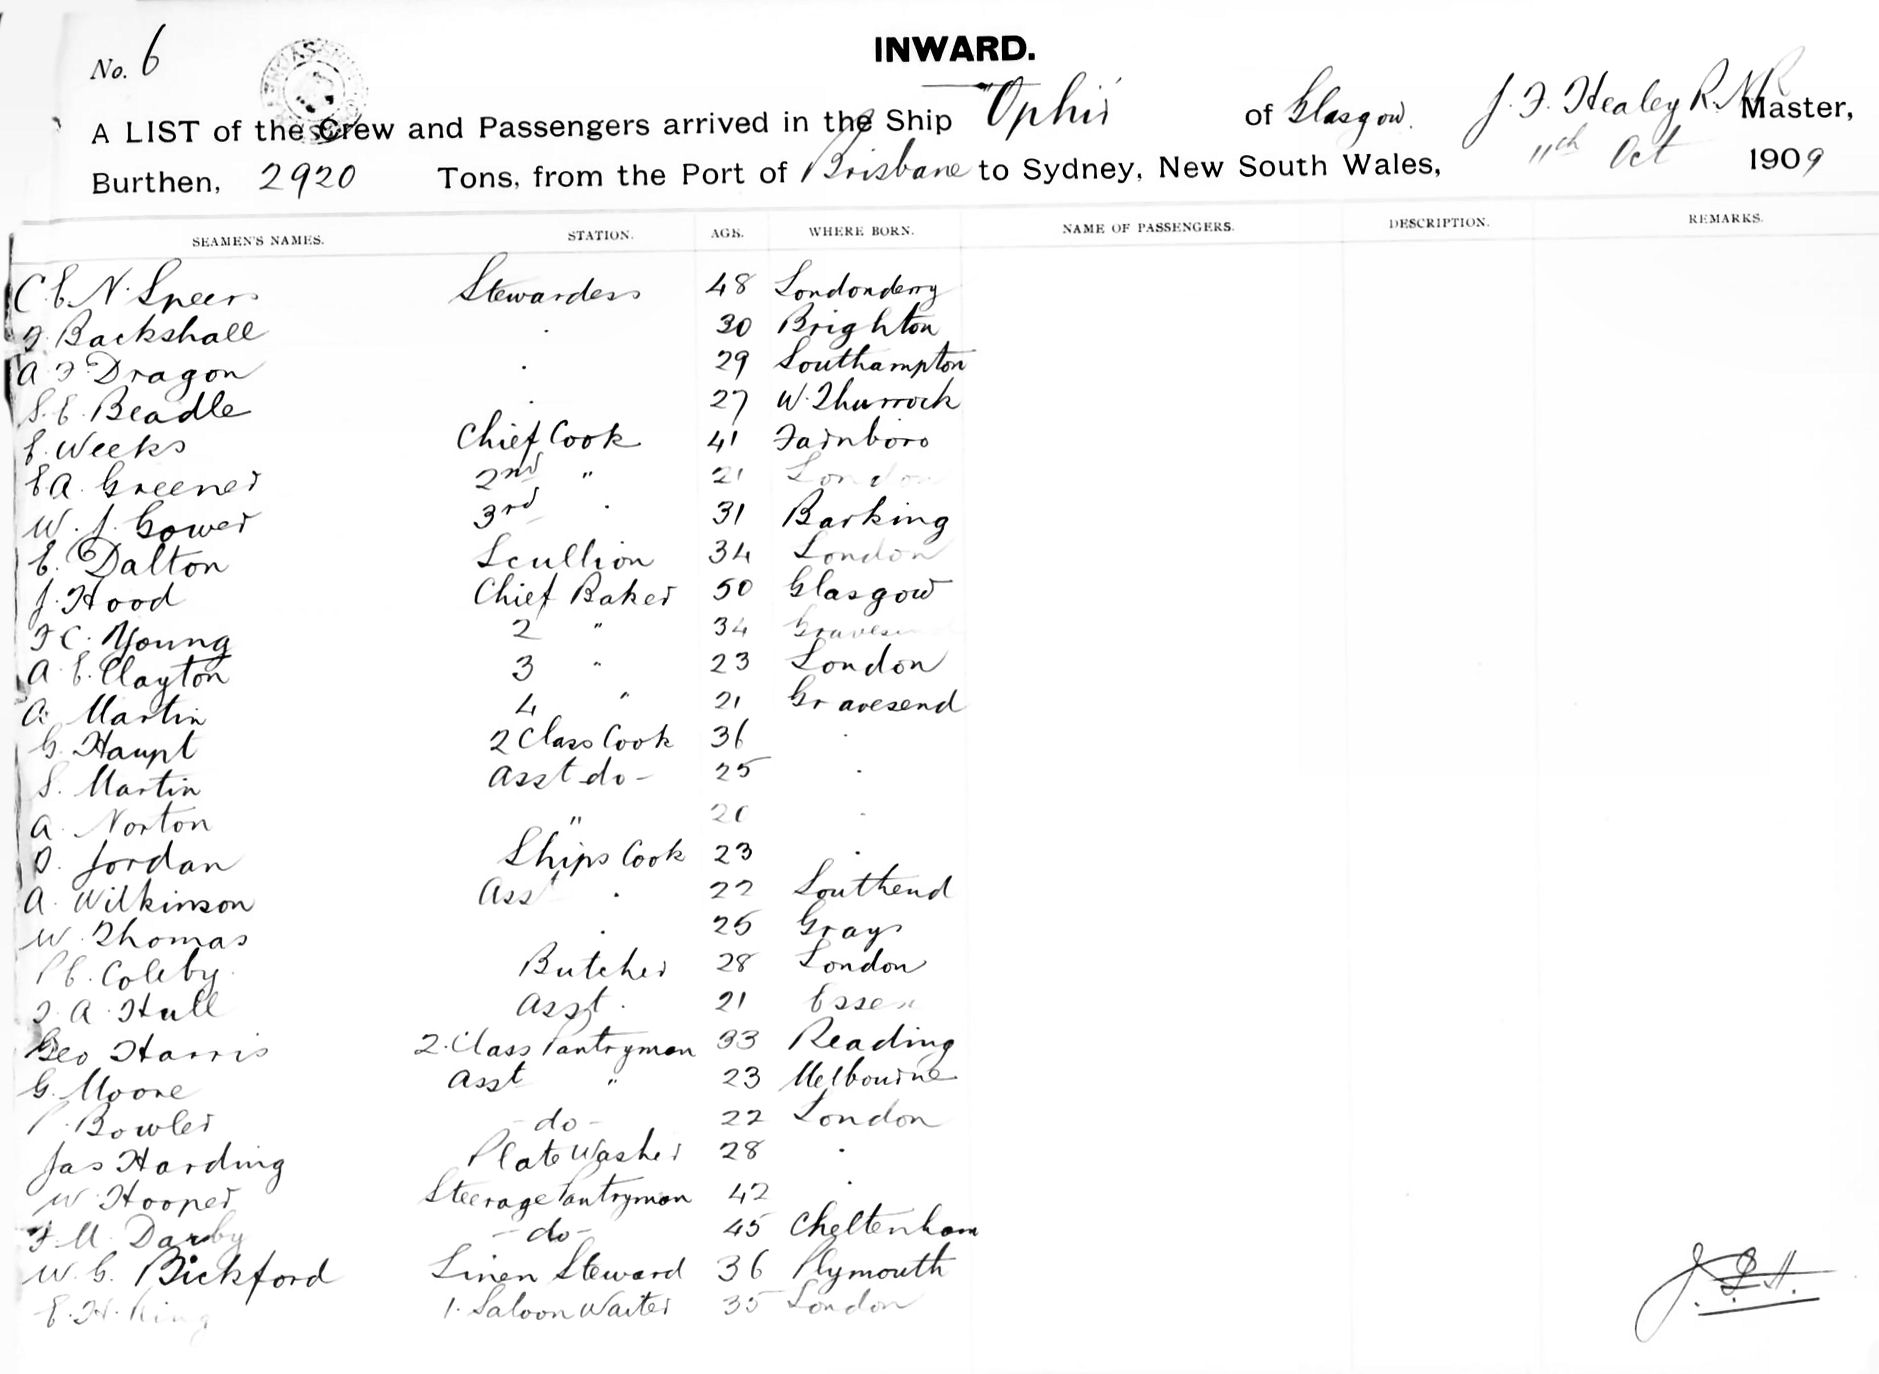 No. 6
INWARD.
A LIST of the Crew and Passengers arrived in the Ship "Ophir" of Glasgow. J. F. Healey R.N.R. Master,
Burthen, 2920 Tons, from the Port of Brisbane to Sydney, New South Wales, 11th Oct 1909
SEAMEN'S NAMES. STATION. AGE. WHERE BORN. NAME OF PASSENGERS. DESCRIPTION. REMARKS.
C. E. N. Speers Stewardess 48 Londonderry
F. Backshall " 30 Brighton
A. F. Dragon " 29 Southampton
S. E. Beadle " 27 W. Thurrock
E. Weeks Chief Cook 41 Farnboro
E A. Greener 2nd " 21 London
W. J. Gower 3rd " 31 Barking
E. Dalton Scullion 34 London
J. Hood Chief Baker 50 Glasgow
F C. Young 2 " 34 Gravesend
A. E. Clayton 3 " 23 London
A. Martin 4 " 21 Gravesend
G. Haupt 2 Class Cook 36 "
S. Martin Asst do - 25 "
A. Norton " 20 "
D. Jordan Ships Cook 23 "
A. Wilkinson Asst " 22 Southend
W. Thomas " 25 Grays
P E. Coleby Butcher 28 London
F. A. Hull Asst. 21 Essex
Geo Harris 2. Class Pantryman 33 Reading
G. Moore Asst " 23 Melbourne
P. Bowler - do - 22 London
Jas Harding Plate Washer 28 "
W. Hooper Steerage Pantryman 42 "
F. M. Darby - do - 45 Cheltenham
W. G. Bickford Linen Steward 36 Plymouth
E. H. King 1. Saloon Waiter 35 London
J. F. H.